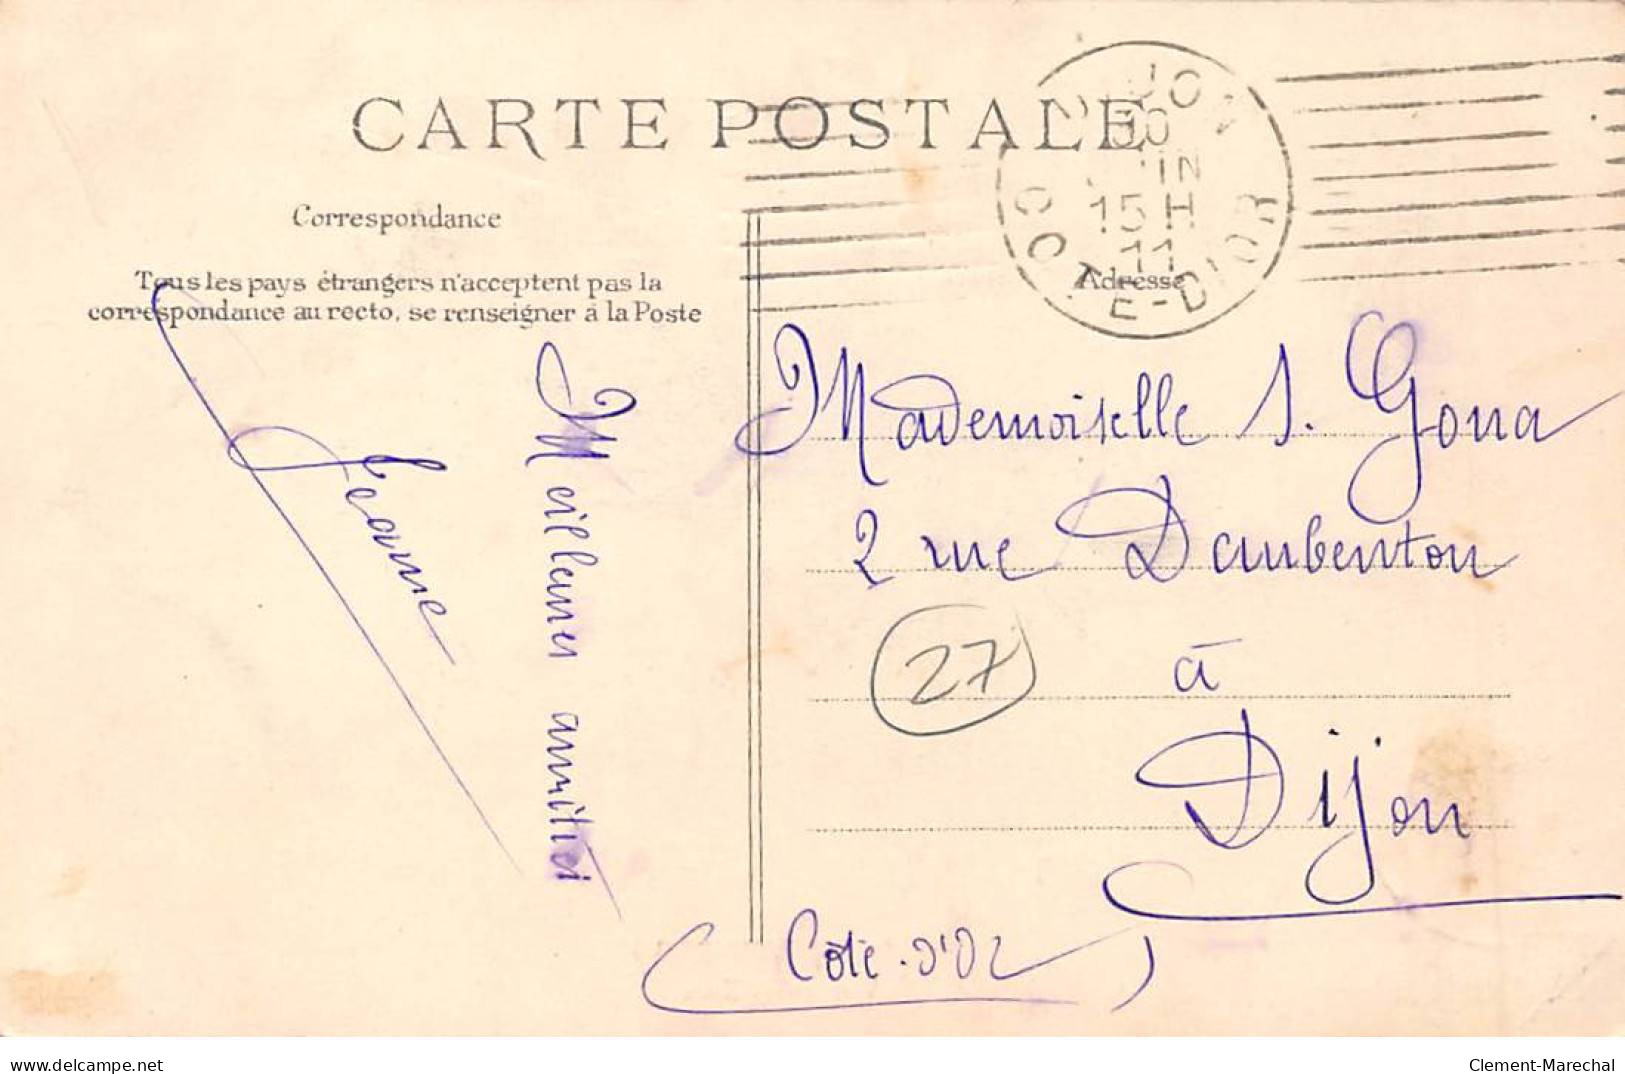 CARTE POSTALE
Correspondance
Tous les pays étrangers n'acceptent pas la
correspondance au recto, se renseigner à la Poste
Meilleures amitiés
Jeanne
DIJON
30
JUIN
15 H
11
COTE-D'OR
Adresse
Mademoiselle S. Gona
2 rue Daubenton
27
à
Dijon
(Côte-d'Or)
www.delcampe.net
Clement-Marechal